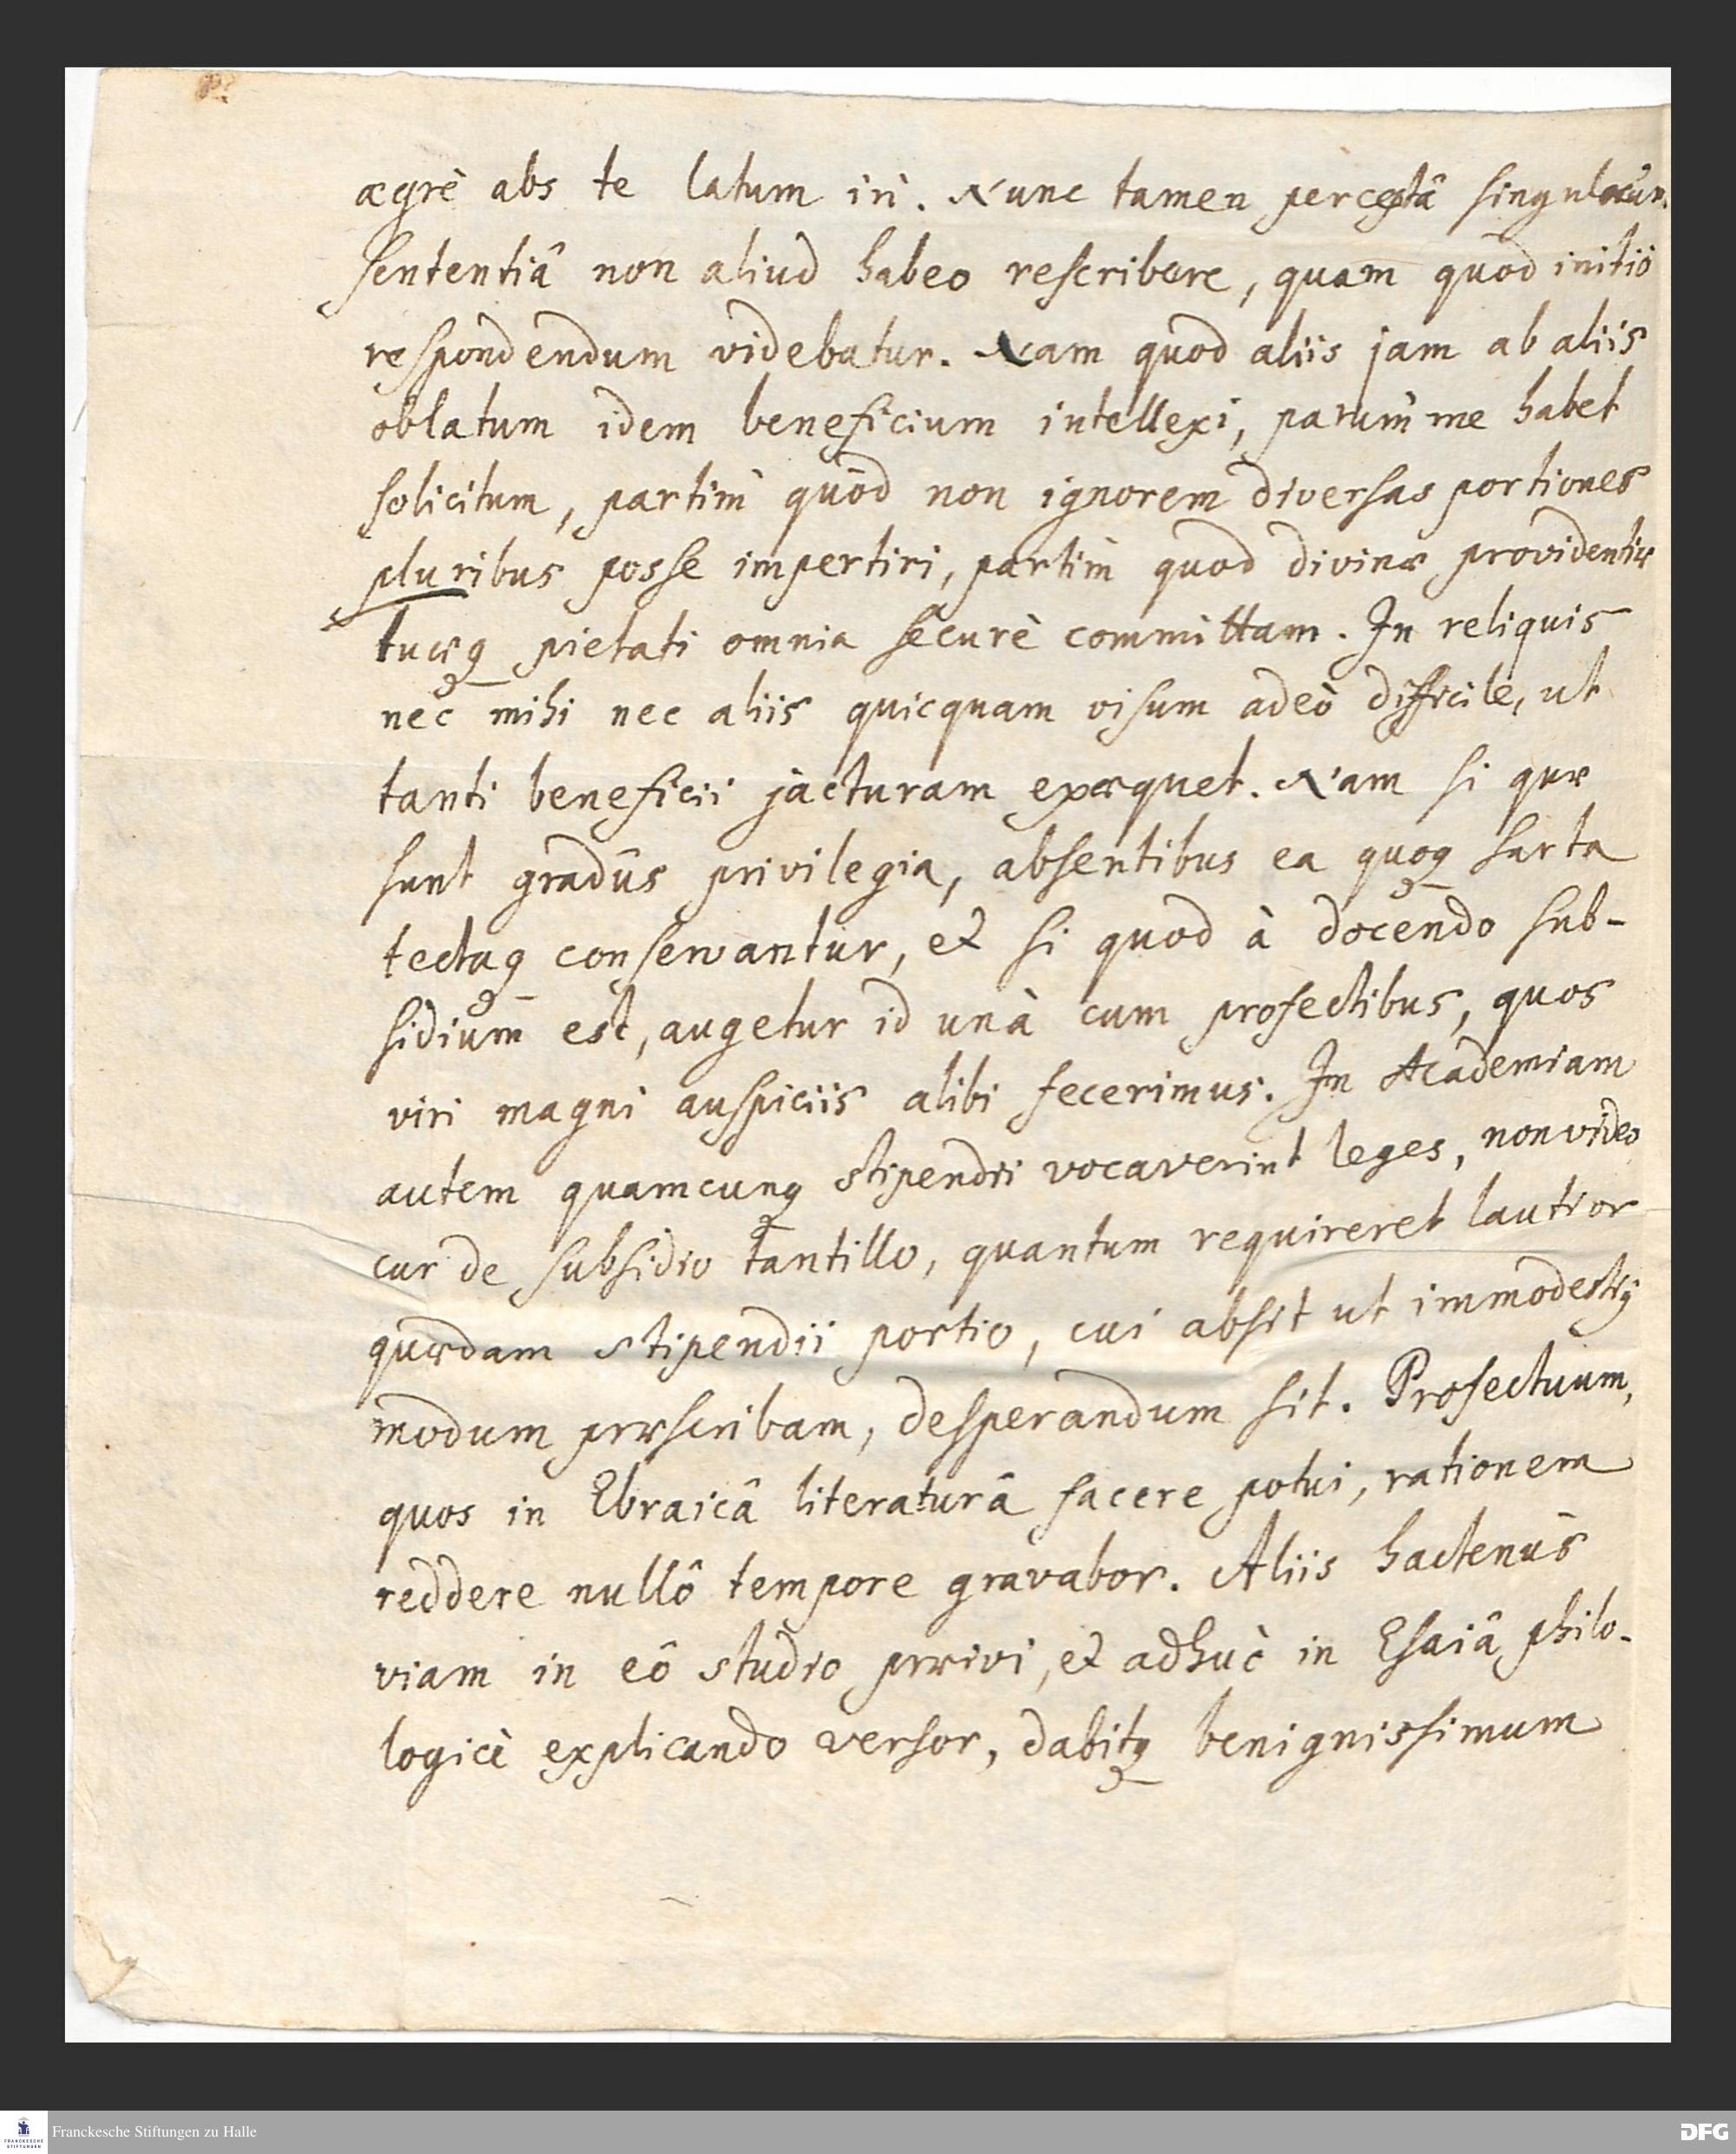 ægrè abs te latum iri. Nunc tamen perceptâ singulorum
sententiâ non aliud habeo rescribere, quam quod initiò
respondendum videbatur. Nam quod aliis jam ab aliis
oblatum idem beneficium intellexi, parum me habet
solicitum, partim quòd non ignorem diversas portiones
pluribus posse impertiri, partim quod divinæ providentiæ
tuæq pietati omnia securè committam. In reliquis
nec mihi nec aliis quicquam visum adeò difficile, ut
tanti beneficii jacturam exæquet. Nam si quæ
sunt gradûs privilegia, absentibus ea quoq sarta
tectaq conservantur, et si quod à docendo sub-
sidium est, augetur id unà cum profectibus, quos
viri magni auspiciis alibi fecerimus. In Academiam
autem quamcunq stipendii vocaverint leges, non video
cur de subsidio tantillo, quantum requireret lautior
quædam stipendii portio, cui absit ut immodestiq
modum præscribam, desperandum sit. Profectuum,
quos in Ebraicâ literaturâ facere potui, rationem
reddere nullô tempore gravabor. Aliis hactenùs
viam in eô studio præivi, et adhuc in Esaiâ philo-
logicè explicando versor, dabitq benignissimum
Franckesche Stiftungen zu Halle
DFG